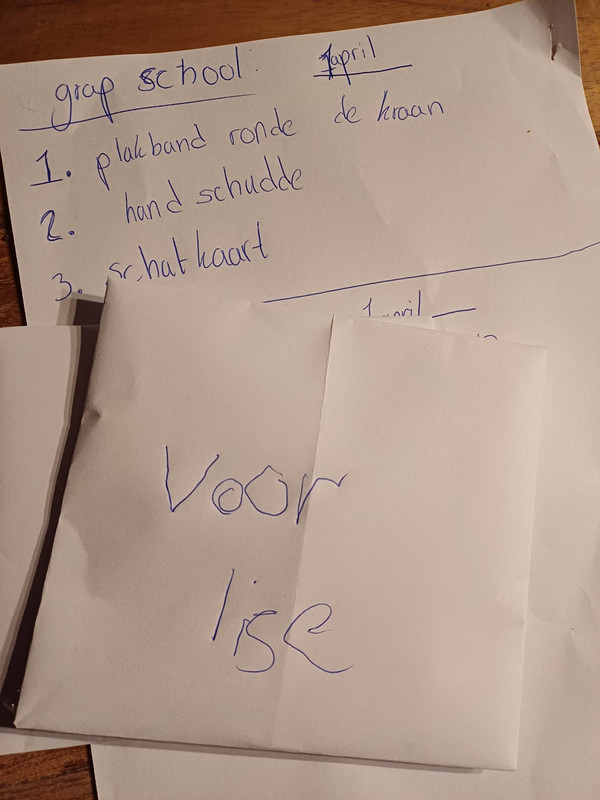 grap school: 1april
1. plakband ronde de kraan
2. hand schudde
3. schatkaart
1april
Voor
lise